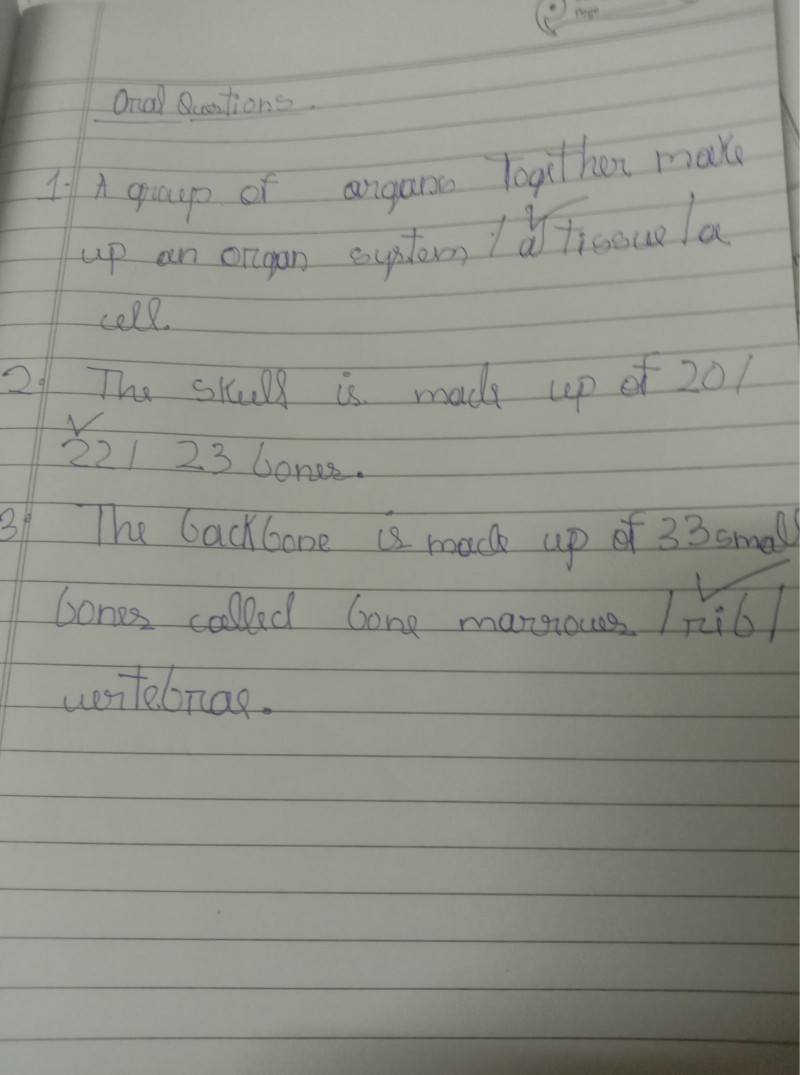 Oral Questions.
1. A group of organs Together make
up an organ system / a tissue / a
cell.
2. The skull is made up of 20/
22/ 23 bones.
3. The backbone is made up of 33 small
bones called bone marrows / rib/
vertebrae.